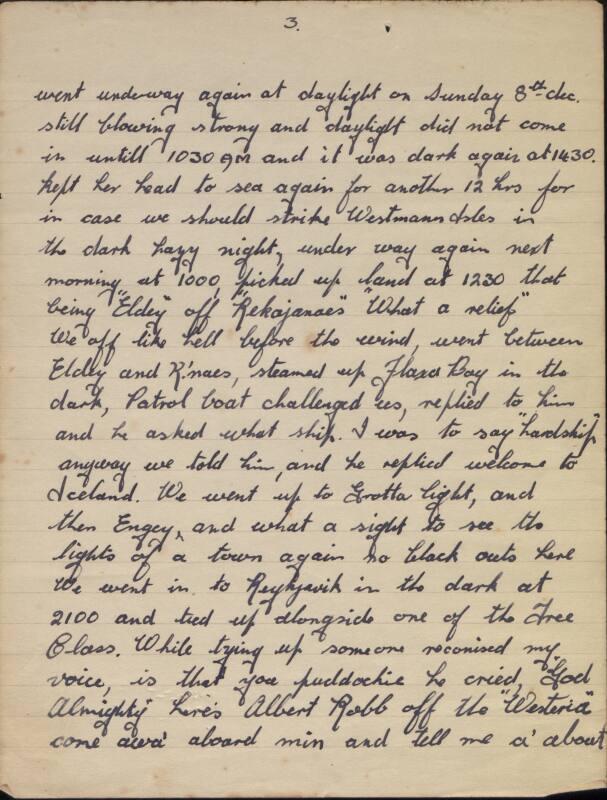 3.
went underway again at daylight on Sunday 8th dec.
still blowing strong and daylight did not come
in untill 1030 am and it was dark again at 1430.
kept her head to sea again for another 12 hrs for
in case we should strike Westmann Isles in
the dark hazy night, under way again next
morning at 1000, picked up land at 1230 that
being "Eldey" off "Rekajanaes" "What a relief"
We off like hell before the wind, went between
Eldey and R'.naes, steamed up Flaxa Bay in the
dark, Patrol boat challenged us, replied to him
and he asked what ship. I was to say "hardship"
anyway we told him, and he replied welcome to
Iceland. We went up to Grotta light, and
then Engey, and what a sight to see the
lights of a town again no black outs here
We went in to Reykjavik in the dark at
2100 and tied up alongside one of the Tree
Class. While tying up someone reconised my
voice, is that you puddochie he cried, "God
Almighty" here's Albert Robb off the "Westeria"
come awa' aboard min and tell me a' about